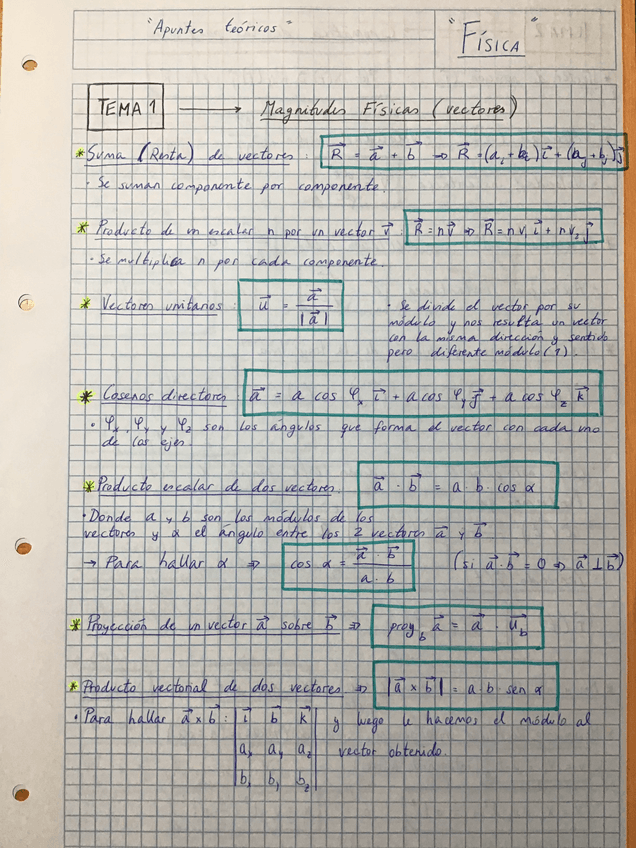 "Apuntes teóricos"
"Física"
TEMA 1 → Magnitudes Físicas (vectores)
* Suma (Resta) de vectores: R⃗ = a⃗ + b⃗ ⇒ R⃗ = (aᵢ + bᵢ)i⃗ + (aⱼ + bⱼ)j⃗
· Se suman componente por componente.
* Producto de un escalar n por un vector v⃗: R⃗ = nv⃗ ⇒ R⃗ = nv₁i⃗ + nv₂j⃗
· Se multiplica n por cada componente.
* Vectores unitarios: u⃗ = a⃗ / |a⃗|
· Se divide el vector por su
módulo y nos resulta un vector
con la misma dirección y sentido
pero diferente módulo (1).
* Cosenos directores a⃗ = a cos φₓ i⃗ + a cos φᵧ j⃗ + a cos φ_z k⃗
· φₓ, φᵧ y φ_z son los ángulos que forma el vector con cada uno
de los ejes.
* Producto escalar de dos vectores: a⃗ · b⃗ = a · b · cos α
· Donde a y b son los módulos de los
vectores y α el ángulo entre los 2 vectores a⃗ y b⃗
→ Para hallar α ⇒ cos α = (a⃗ · b⃗) / (a · b) (si a⃗ · b⃗ = 0 ⇒ a⃗ ⊥ b⃗)
* Proyección de un vector a⃗ sobre b⃗ ⇒ proy_b a⃗ = a⃗ · u⃗_b
* Producto vectorial de dos vectores ⇒ |a⃗ × b⃗| = a · b · sen α
· Para hallar a⃗ × b⃗: | i⃗ b⃗ k⃗ | y luego le hacemos el módulo al
| aₓ aᵧ a_z | vector obtenido.
| bₓ bᵧ b_z |